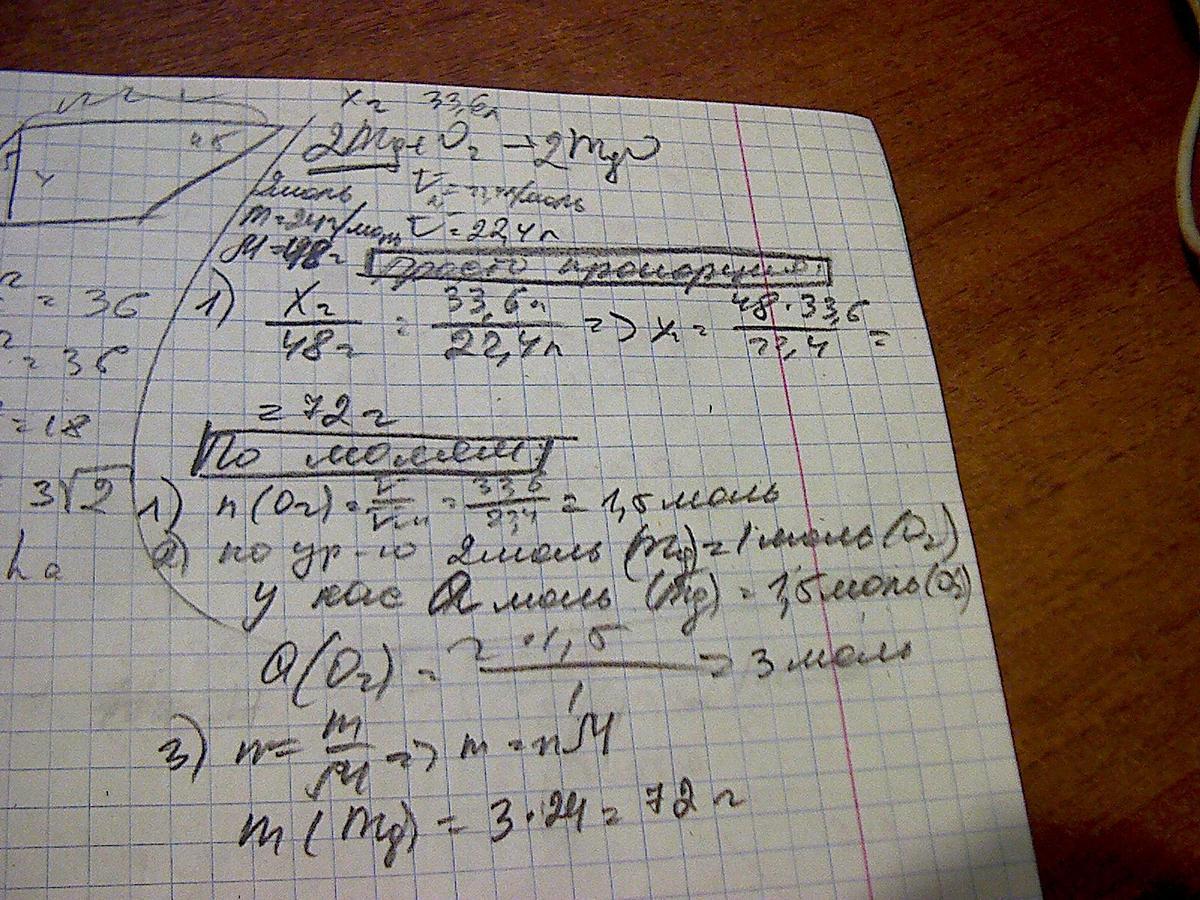 x г 33,6л
2Mg + O₂ → 2MgO
2моль
V = 22,4л
просто пропорция:
1) x г / 48 г = 33,6 л / 22,4 л => x = 48·33,6 / 22,4 =
= 72 г
По молям
1) n(O₂) = V / Vm = 33,6 / 22,4 = 1,5 моль
2) по ур-ю 2 моль (Mg) = 1 моль (O₂)
у нас Q моль (Mg) = 1,5 моль (O₂)
Q(O₂) = 2 · 1,5 / 1 = 3 моль
3) n = m / M => m = nM
m (Mg) = 3 · 24 = 72 г
45
4
= 36
= 36
= 18
3√2